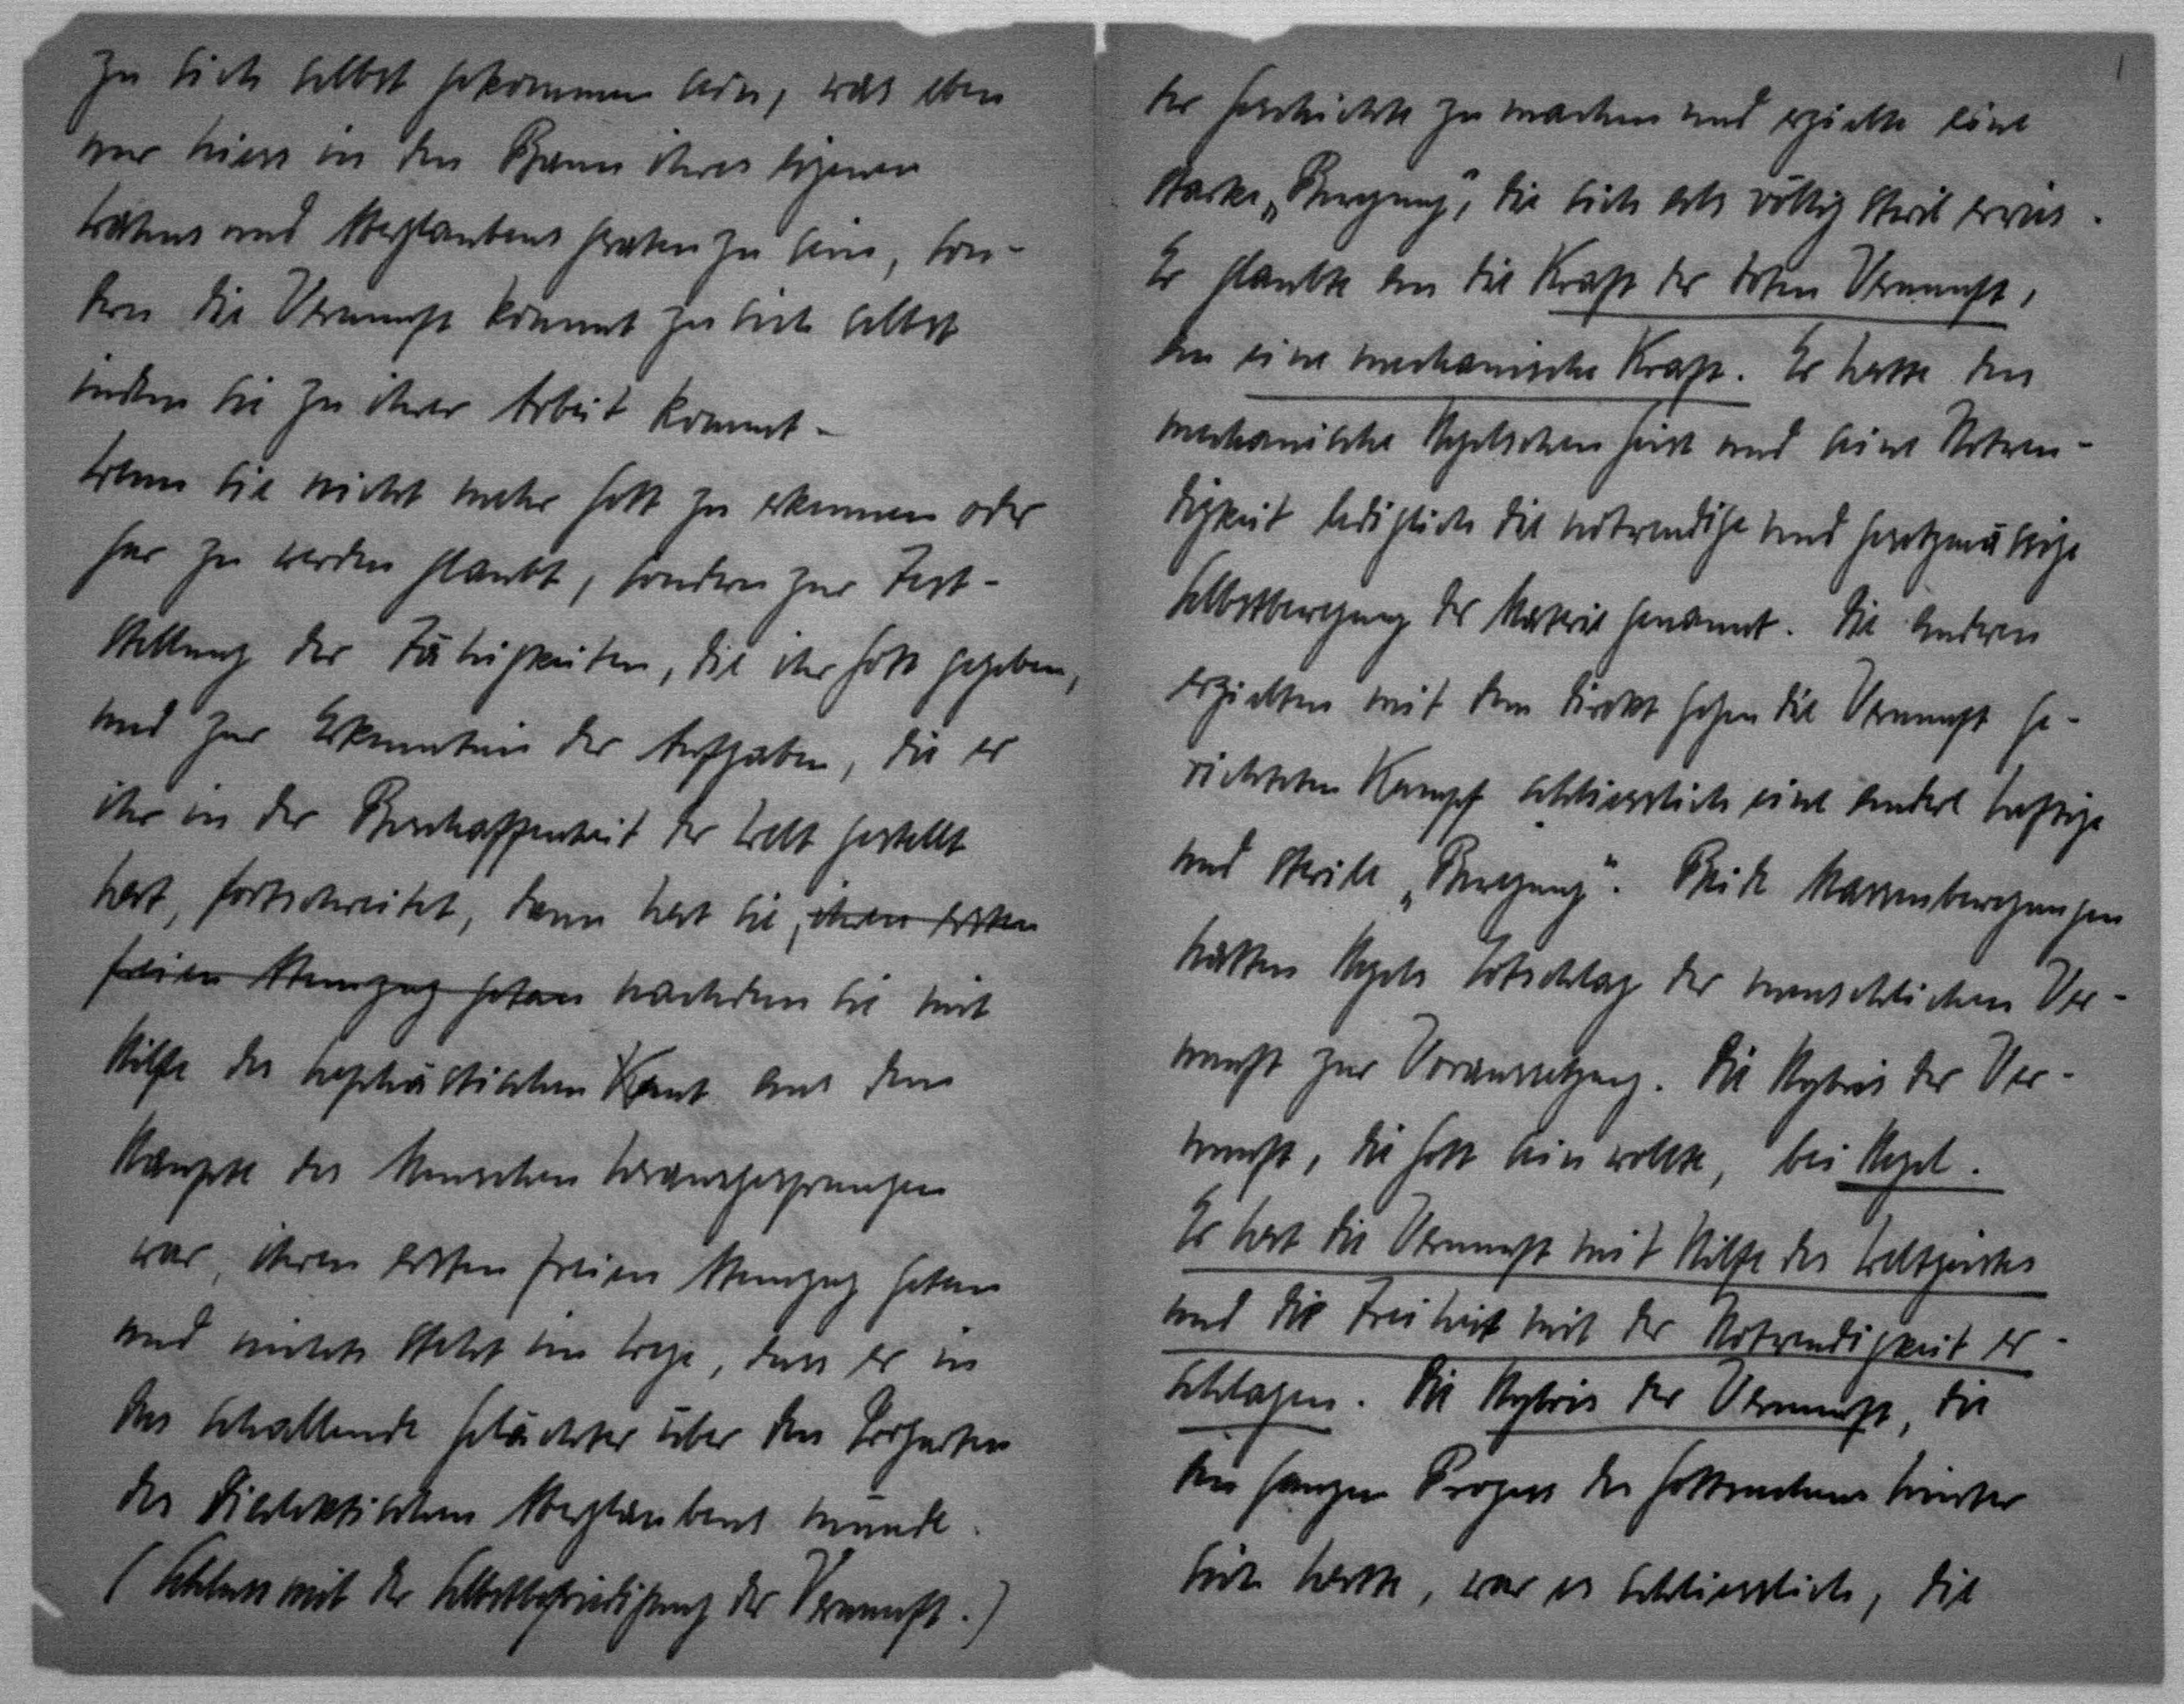 zu sich selbst gekommen sein, was eben
nur hiess in den Bann ihres eigenen
Wahns und Aberglaubens geraten zu sein, son-
dern die Vernunft kommt zu sich selbst
indem sie zu ihrer Arbeit kommt –
Wenn sie nicht mehr Gott zu erkennen oder
gar zu werden glaubt, sondern zur Fest-
stellung der Fähigkeiten, die ihr Gott gegeben,
und zur Erkenntnis der Aufgaben, die er
ihr in der Beschaffenheit der Welt gestellt
hat, fortschreitet, dann hat sie, ihren ersten
freien Atemzug getan nachdem sie mit
Hilfe des hephästischen Kant aus dem
Haupte des Menschen herausgesprungen
war, ihren ersten freien Atemzug getan
und nichts steht im Wege, dass er in
das schallende Gelächter über den Popanz
des dialektischen Aberglaubens münde.
(Schluss mit der Selbstbefriedigung der Vernunft.)
der Geschichte zu machen und erzielte eine
starke „Bewegung", die sich als völlig steril erwies.
Er glaubte an die Kraft der toten Vernunft,
an eine mechanische Kraft. Er hatte den
mechanischen Hegelschen Geist und seine Notwen-
digkeit lediglich die notwendige und gesetzmässige
Selbstbewegung der Materie genannt. Die anderen
erzielten mit dem direkt gegen die Vernunft ge-
richteten Kampf schliesslich eine andere heftige
und sterile „Bewegung". Beide Massenbewegungen
hatten Hegels Totschlag der menschlichen Ver-
nunft zur Voraussetzung. Die Hybris der Ver-
nunft, die Gott sein wollte, bei Hegel.
Er hat die Vernunft mit Hilfe des Weltgeistes
und die Freiheit mit der Notwendigkeit er-
schlagen. Die Hybris der Vernunft, die
den ganzen Prozess des Gottwerdens hinter
sich hatte, war es schliesslich, die